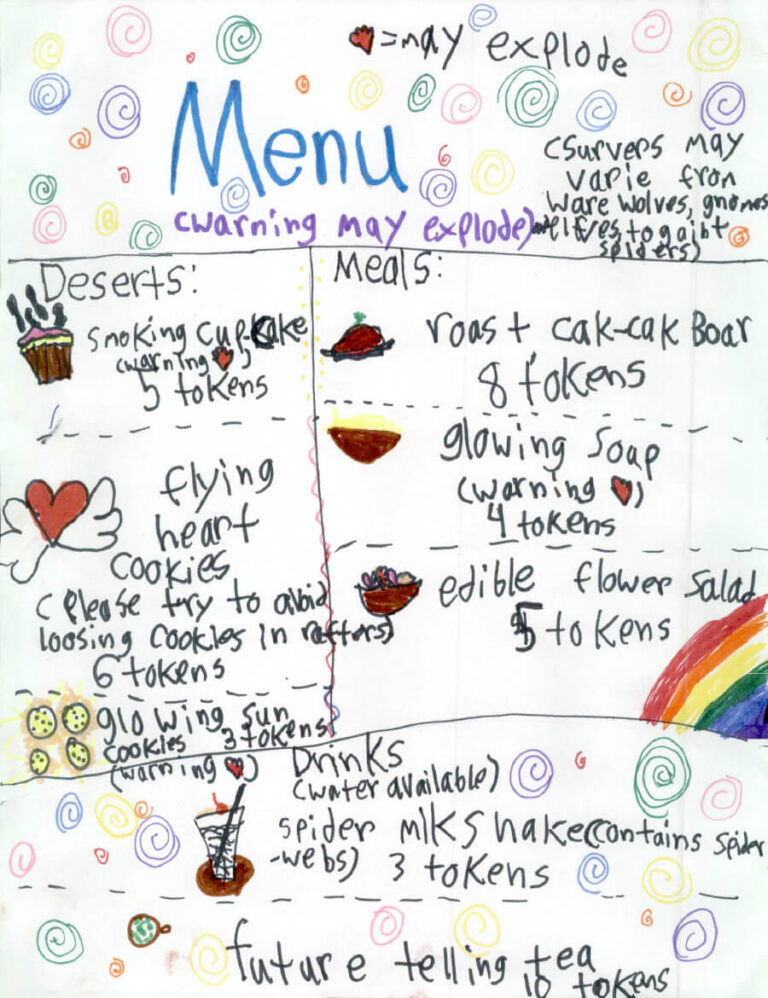 =may explode
Menu
(warning may explode)
(Survers may
varie from
ware wolves, gnomes
elfves, to gaint
spiders)
Deserts:
smoking cup-cake
(warning )
5 tokens
flying
heart
cookies
(Please try to aboid
loosing cookies in rafters)
6 tokens
glowing sun
cookies 3 tokens
(warning )
Meals:
roast cak-cak Boar
8 tokens
glowing soap
(warning )
4 tokens
edible flower salad
5 tokens
Drinks
(water available)
spider milkshake (contains spider
-webs) 3 tokens
future telling tea
10 tokens